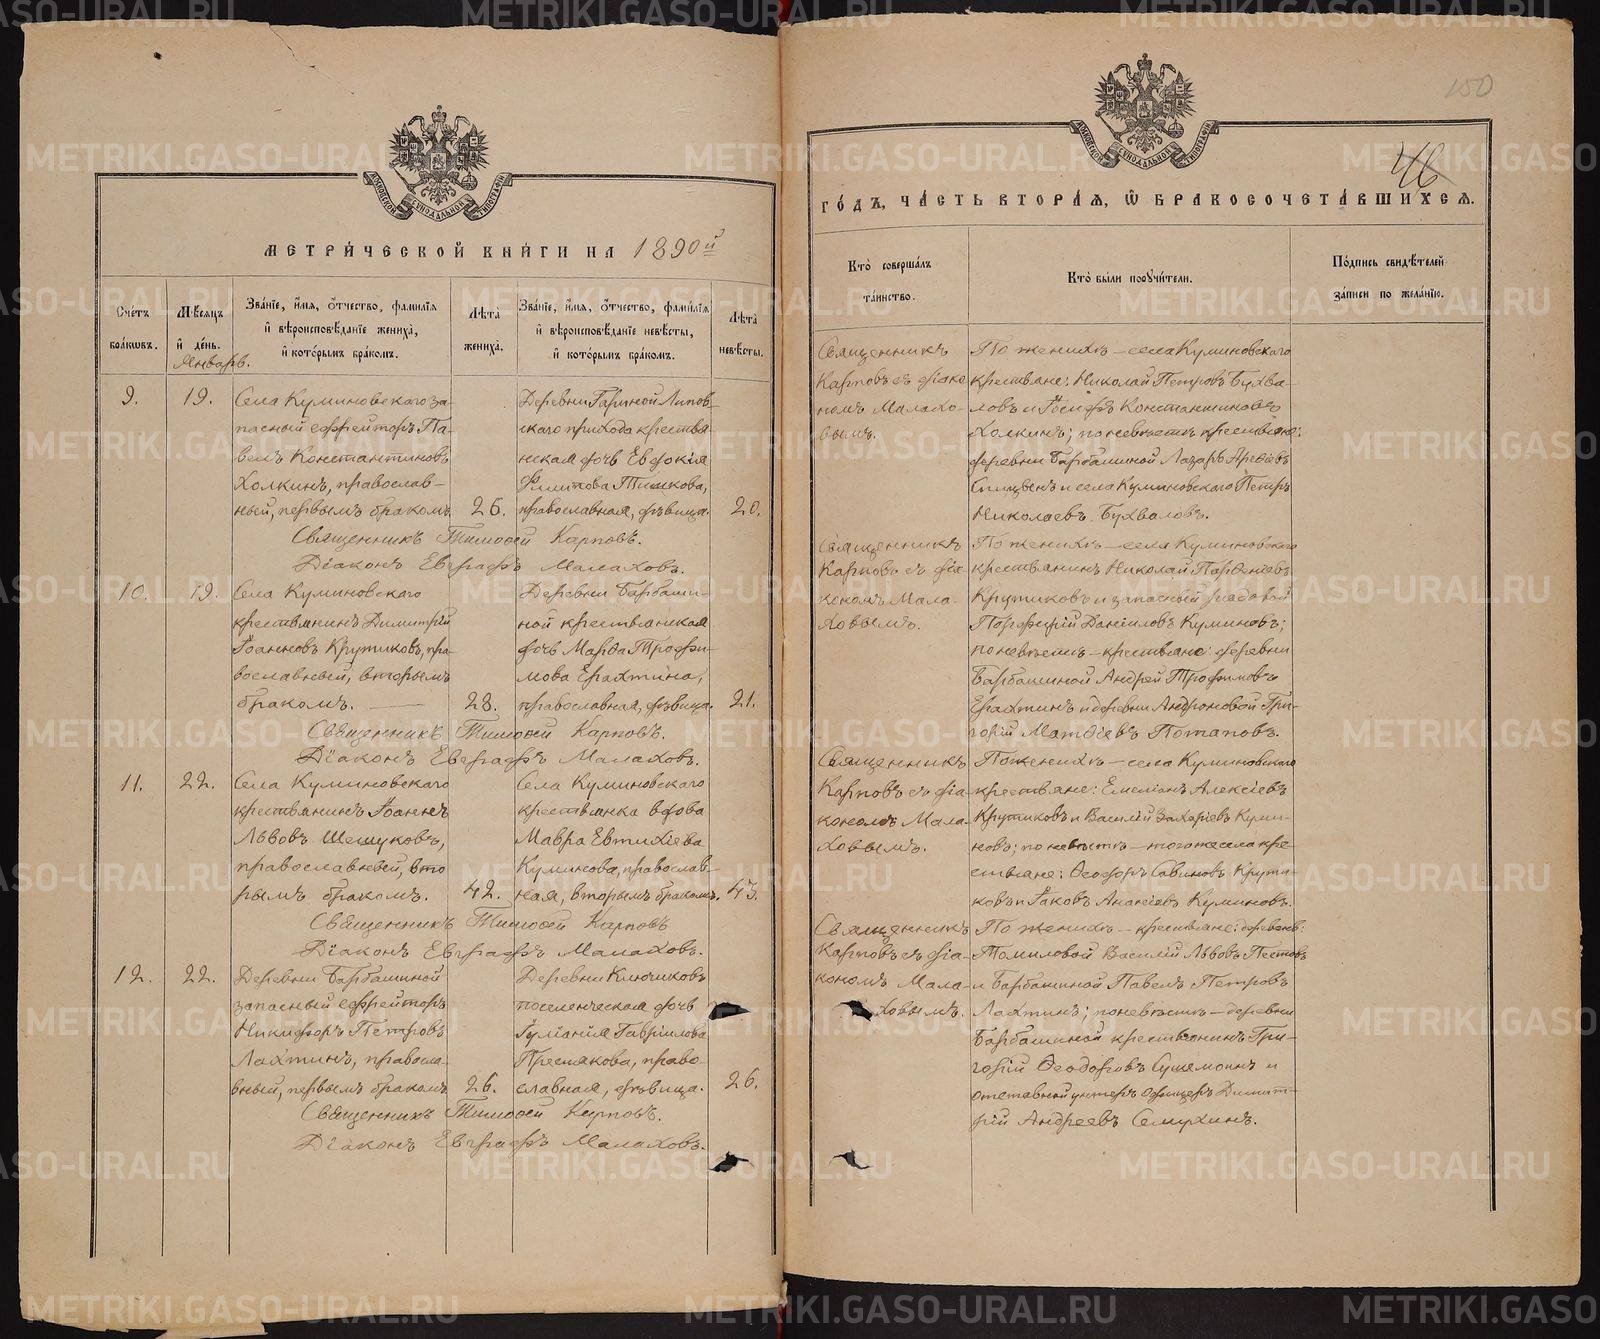 METRIKI.GASO-URAL.RU
МОСКОВСКОЙ СѴНОДАЛЬНОЙ ТИПОГРАФІИ
МЕТРИ́ЧЕСКОЙ КНИ́ГИ НА 1890й
Сче́тъ бра́кωвъ.
Мѣ́сяцъ и҆ де́нь.
Январь.
Зва́нїе, и҆́мя, ѻ҆́тчество, фами́лїѧ
и҆ вѣроисповѣ́данїе жениха̀,
и҆ кото́рымъ бра́комъ.
Лѣта̀ жениха̀.
Зва́нїе, и҆́мя, ѻ҆́тчество, фами́лїѧ
и҆ вѣроисповѣ́данїе невѣ́сты,
и҆ кото́рымъ бра́комъ.
Лѣта̀ невѣ́сты.
9. 19.
Села Куминовскаго за-
пасный ефрейторъ Па-
велъ Константиновъ
Холкинъ, православ-
ный, первымъ бракомъ. 26.
Деревни Гариной Липов-
скаго прихода крестья-
нская дочь Евдокія
Филипова Тишкова,
православная, дѣвица. 20.
Священникъ Тимоѳей Карповъ.
Діаконъ Евграфъ Малаховъ.
10. 19.
Села Куминовскаго
крестьянинъ Димитрій
Іоанновъ Крутиковъ, пра-
вославный, вторымъ
бракомъ. — 28.
Деревни Барбаши-
ной крестьянская
дочь Марѳа Трофи-
мова Ерахтина,
православная, дѣвица. 21.
Священникъ Тимоѳей Карповъ.
Діаконъ Евграфъ Малаховъ.
11. 22.
Села Куминовскаго
крестьянинъ Іоаннъ
Львовъ Шешуковъ,
православный, вто
рымъ бракомъ. 42.
Села Куминовскаго
крестьянка вдова
Мавра Евтихіева
Куминова, православ-
ная, вторымъ бракомъ. 43.
Священникъ Тимоѳей Карповъ
Діаконъ Евграфъ Малаховъ.
12. 22.
Деревни Барбашиной
запасный ефрейторъ
Никифоръ Петровъ
Лахтинъ, правосла-
вный, первымъ бракомъ 26.
Деревни Ключиковъ
поселенческая дочь
Іуліанія Гавріилова
Преснякова, право-
славная, дѣвица. 26.
Священникъ Тимоѳей Карповъ.
Діаконъ Евграфъ Малаховъ.
150
46
МОСКОВСКОЙ СѴНОДАЛЬНОЙ ТИПОГРАФІИ
ГО́ДЪ, ЧА́СТЬ ВТОРА́Ѧ, Ѽ БРАКОСОЧЕТА́ВШИХСѦ.
Кто̀ соверша́лъ
та́инство.
Кто̀ бы́ли порꙋчи́тели.
По́дпись свидѣ́телей
за́писи по жела́нїю.
Священникъ
Карповъ съ діако
номъ Малахо-
вымъ.
По женихѣ — села Куминовскаго
крестьяне: Николай Петровъ Бухва-
ловъ и Іосифъ Константиновъ
Холкинъ; по невѣстѣ крестьяне:
деревни Барбашиной Лазарь
и села Куминовскаго Петръ
Николаевъ Бухваловъ.
Священникъ
Карповъ съ діа
кономъ Мала-
ховымъ.
По женихѣ — села Куминовскаго
крестьянинъ Николай Парѳеніевъ
Крутиковъ и запасный рядовой
Порфирій Даніиловъ Куминовъ;
по невѣстѣ — крестьяне: деревни
Барбашиной Андрей Трофимовъ
Ерахтинъ и деревни Андроновой Гри-
горій Матѳіевъ Потаповъ.
Священникъ
Карповъ съ діа-
кономъ Мала-
ховымъ.
По женихѣ — села Куминовскаго
крестьяне: Емеліанъ Алексіевъ
Крутиковъ и Василій Захаріевъ Куми-
новъ; по невѣстѣ — того же села кре-
стьяне: Ѳеодоръ Савиновъ Крути-
ковъ и Іаковъ Ананіевъ Куминовъ.
Священникъ
Карповъ съ діа-
кономъ Мала-
ховымъ.
По женихѣ — крестьяне: деревень:
Томиловой Василій Львовъ Пестовъ
и Барбашиной Павелъ Петровъ
Лахтинъ; по невѣстѣ — деревни
Барбашиной крестьянинъ Гри-
горій Ѳеодоровъ и
отставный унтеръ офицеръ Димит-
рій Андреевъ Семухинъ.